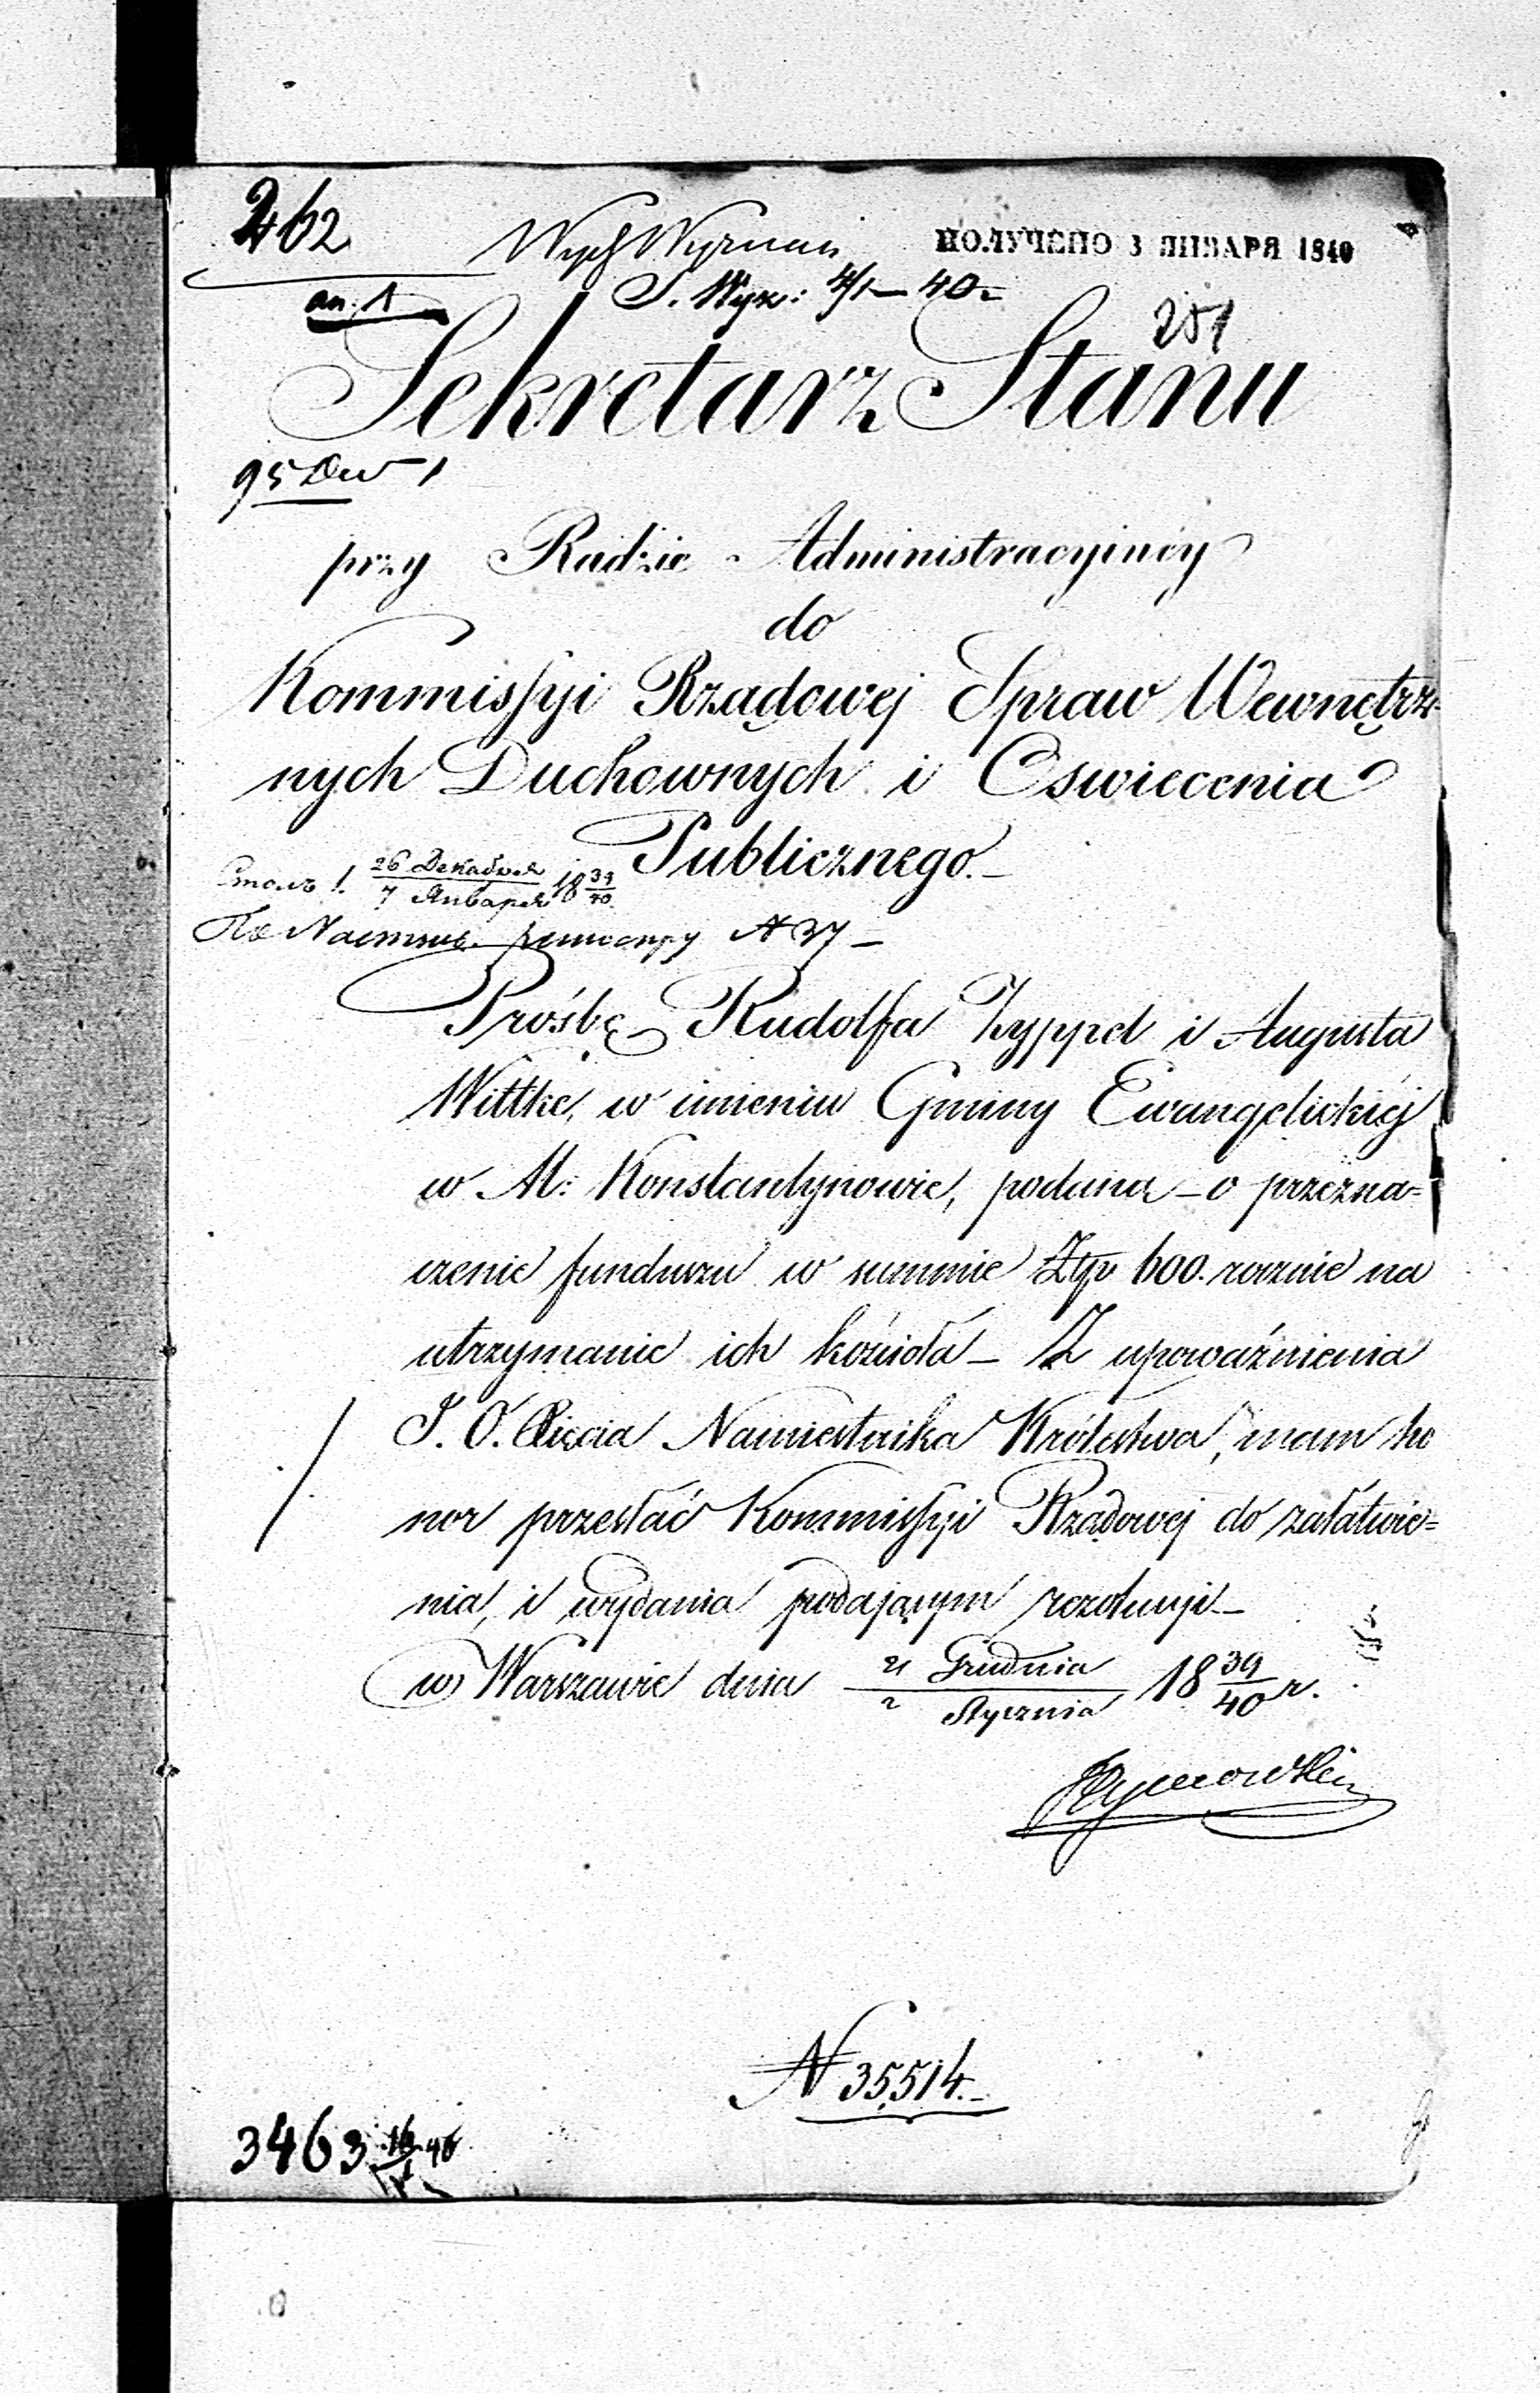 262
ПОЛУЧЕНО 3 ЯНВАРЯ 1840
an. 1
S. Wyzn: 4/1 — 40
251
Sekretarz Stanu
95 Dw 1
przy Radzie Administracyinéy
do
Kommissyi Rządowej Spraw Wewnętrz-
nych Duchownych i Oswiecenia
Publicznego.
26 Декабря
7 Января 18 39/40
No 37
Prośbę Rudolfa Zyppel i Augusta
Wittke, w imieniu Gminy Ewangelickiéj
w M: Konstantynowie, podaną – o przezna=
czenie funduszu w summie Złp 600. rocznie na
utrzymanie ich kościoła – Z upoważnienia
J. O. Xięcia Namiestnika Królestwa, mam ho
nor przesłać Kommissyi Rządowej do załatwie=
nia, i wydania podającym rezolucyi –
w Warszawie dnia 21 Grudnia / 2 Stycznia 18 39/40 r.
N 35,514.
3463